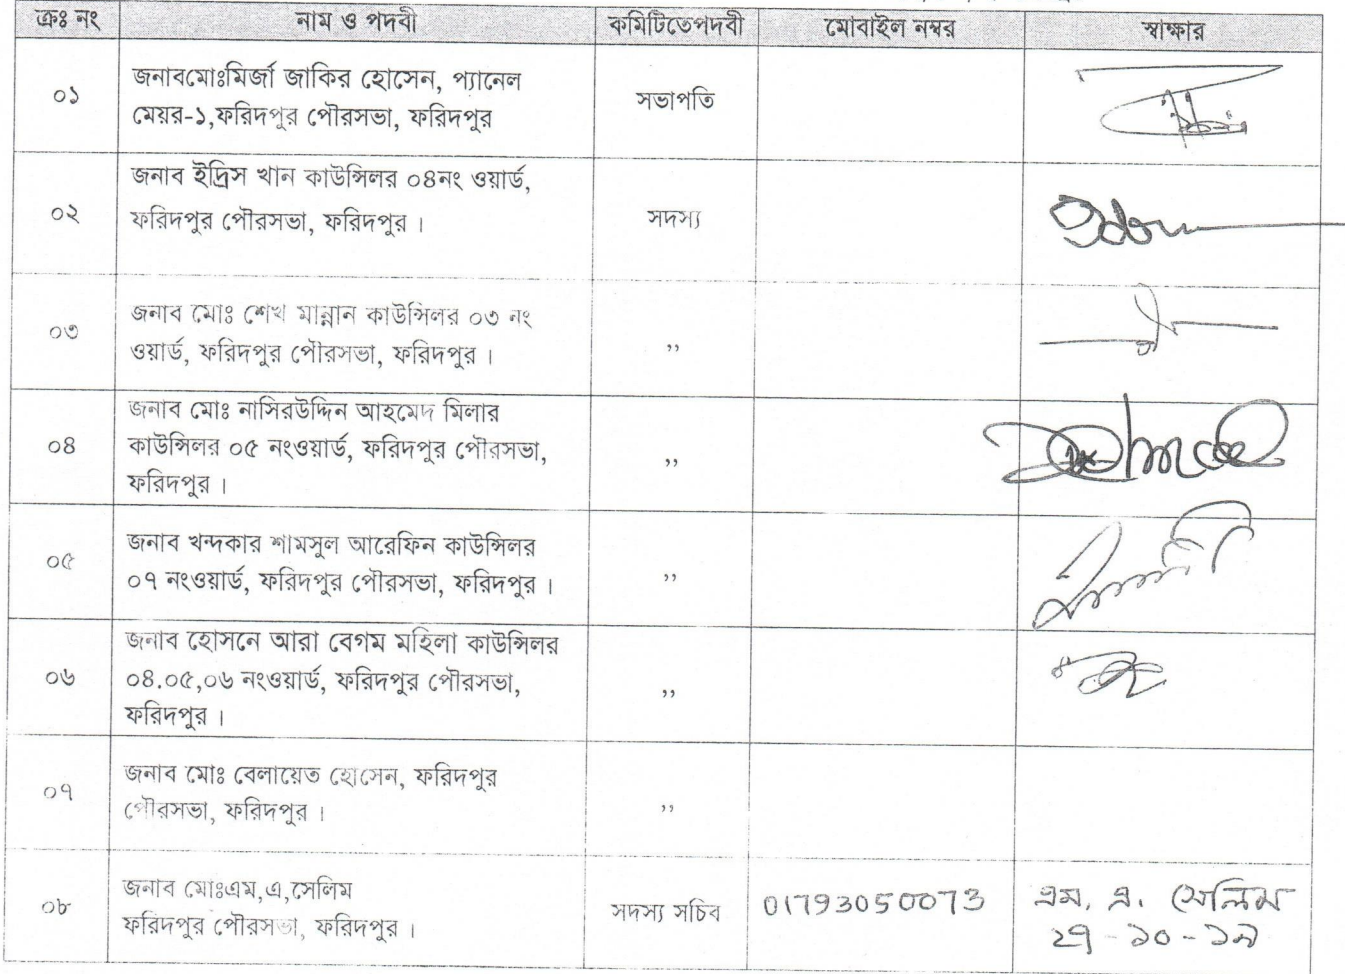 ক্রঃ নং নাম ও পদবী কমিটিতেপদবী মোবাইল নম্বর স্বাক্ষার
জনাবমোঃমির্জা জাকির হোসেন, প্যানেল
০১ মেয়র-১,ফরিদপুর পৌরসভা, ফরিদপুর সভাপতি
জনাব ইদ্রিস খান কাউন্সিলর ০৪নং ওয়ার্ড,
০২ ফরিদপুর পৌরসভা, ফরিদপুর । সদস্য
জনাব মোঃ শেখ মান্নান কাউন্সিলর ০৩ নং
০৩ ওয়ার্ড, ফরিদপুর পৌরসভা, ফরিদপুর । ,,
জনাব মোঃ নাসিরউদ্দিন আহমেদ মিলার
০৪ কাউন্সিলর ০৫ নংওয়ার্ড, ফরিদপুর পৌরসভা, ,,
ফরিদপুর ।
জনাব খন্দকার শামসুল আরেফিন কাউন্সিলর
০৫ ০৭ নংওয়ার্ড, ফরিদপুর পৌরসভা, ফরিদপুর । ,,
জনাব হোসনে আরা বেগম মহিলা কাউন্সিলর
০৬ ০৪.০৫,০৬ নংওয়ার্ড, ফরিদপুর পৌরসভা, ,,
ফরিদপুর ।
জনাব মোঃ বেলায়েত হোসেন, ফরিদপুর
০৭ পৌরসভা, ফরিদপুর । ,,
জনাব মোঃএম,এ,সেলিম এম. এ. সেলিম
০৮ ফরিদপুর পৌরসভা, ফরিদপুর । সদস্য সচিব 01793050073 ২৭-১০-১৯